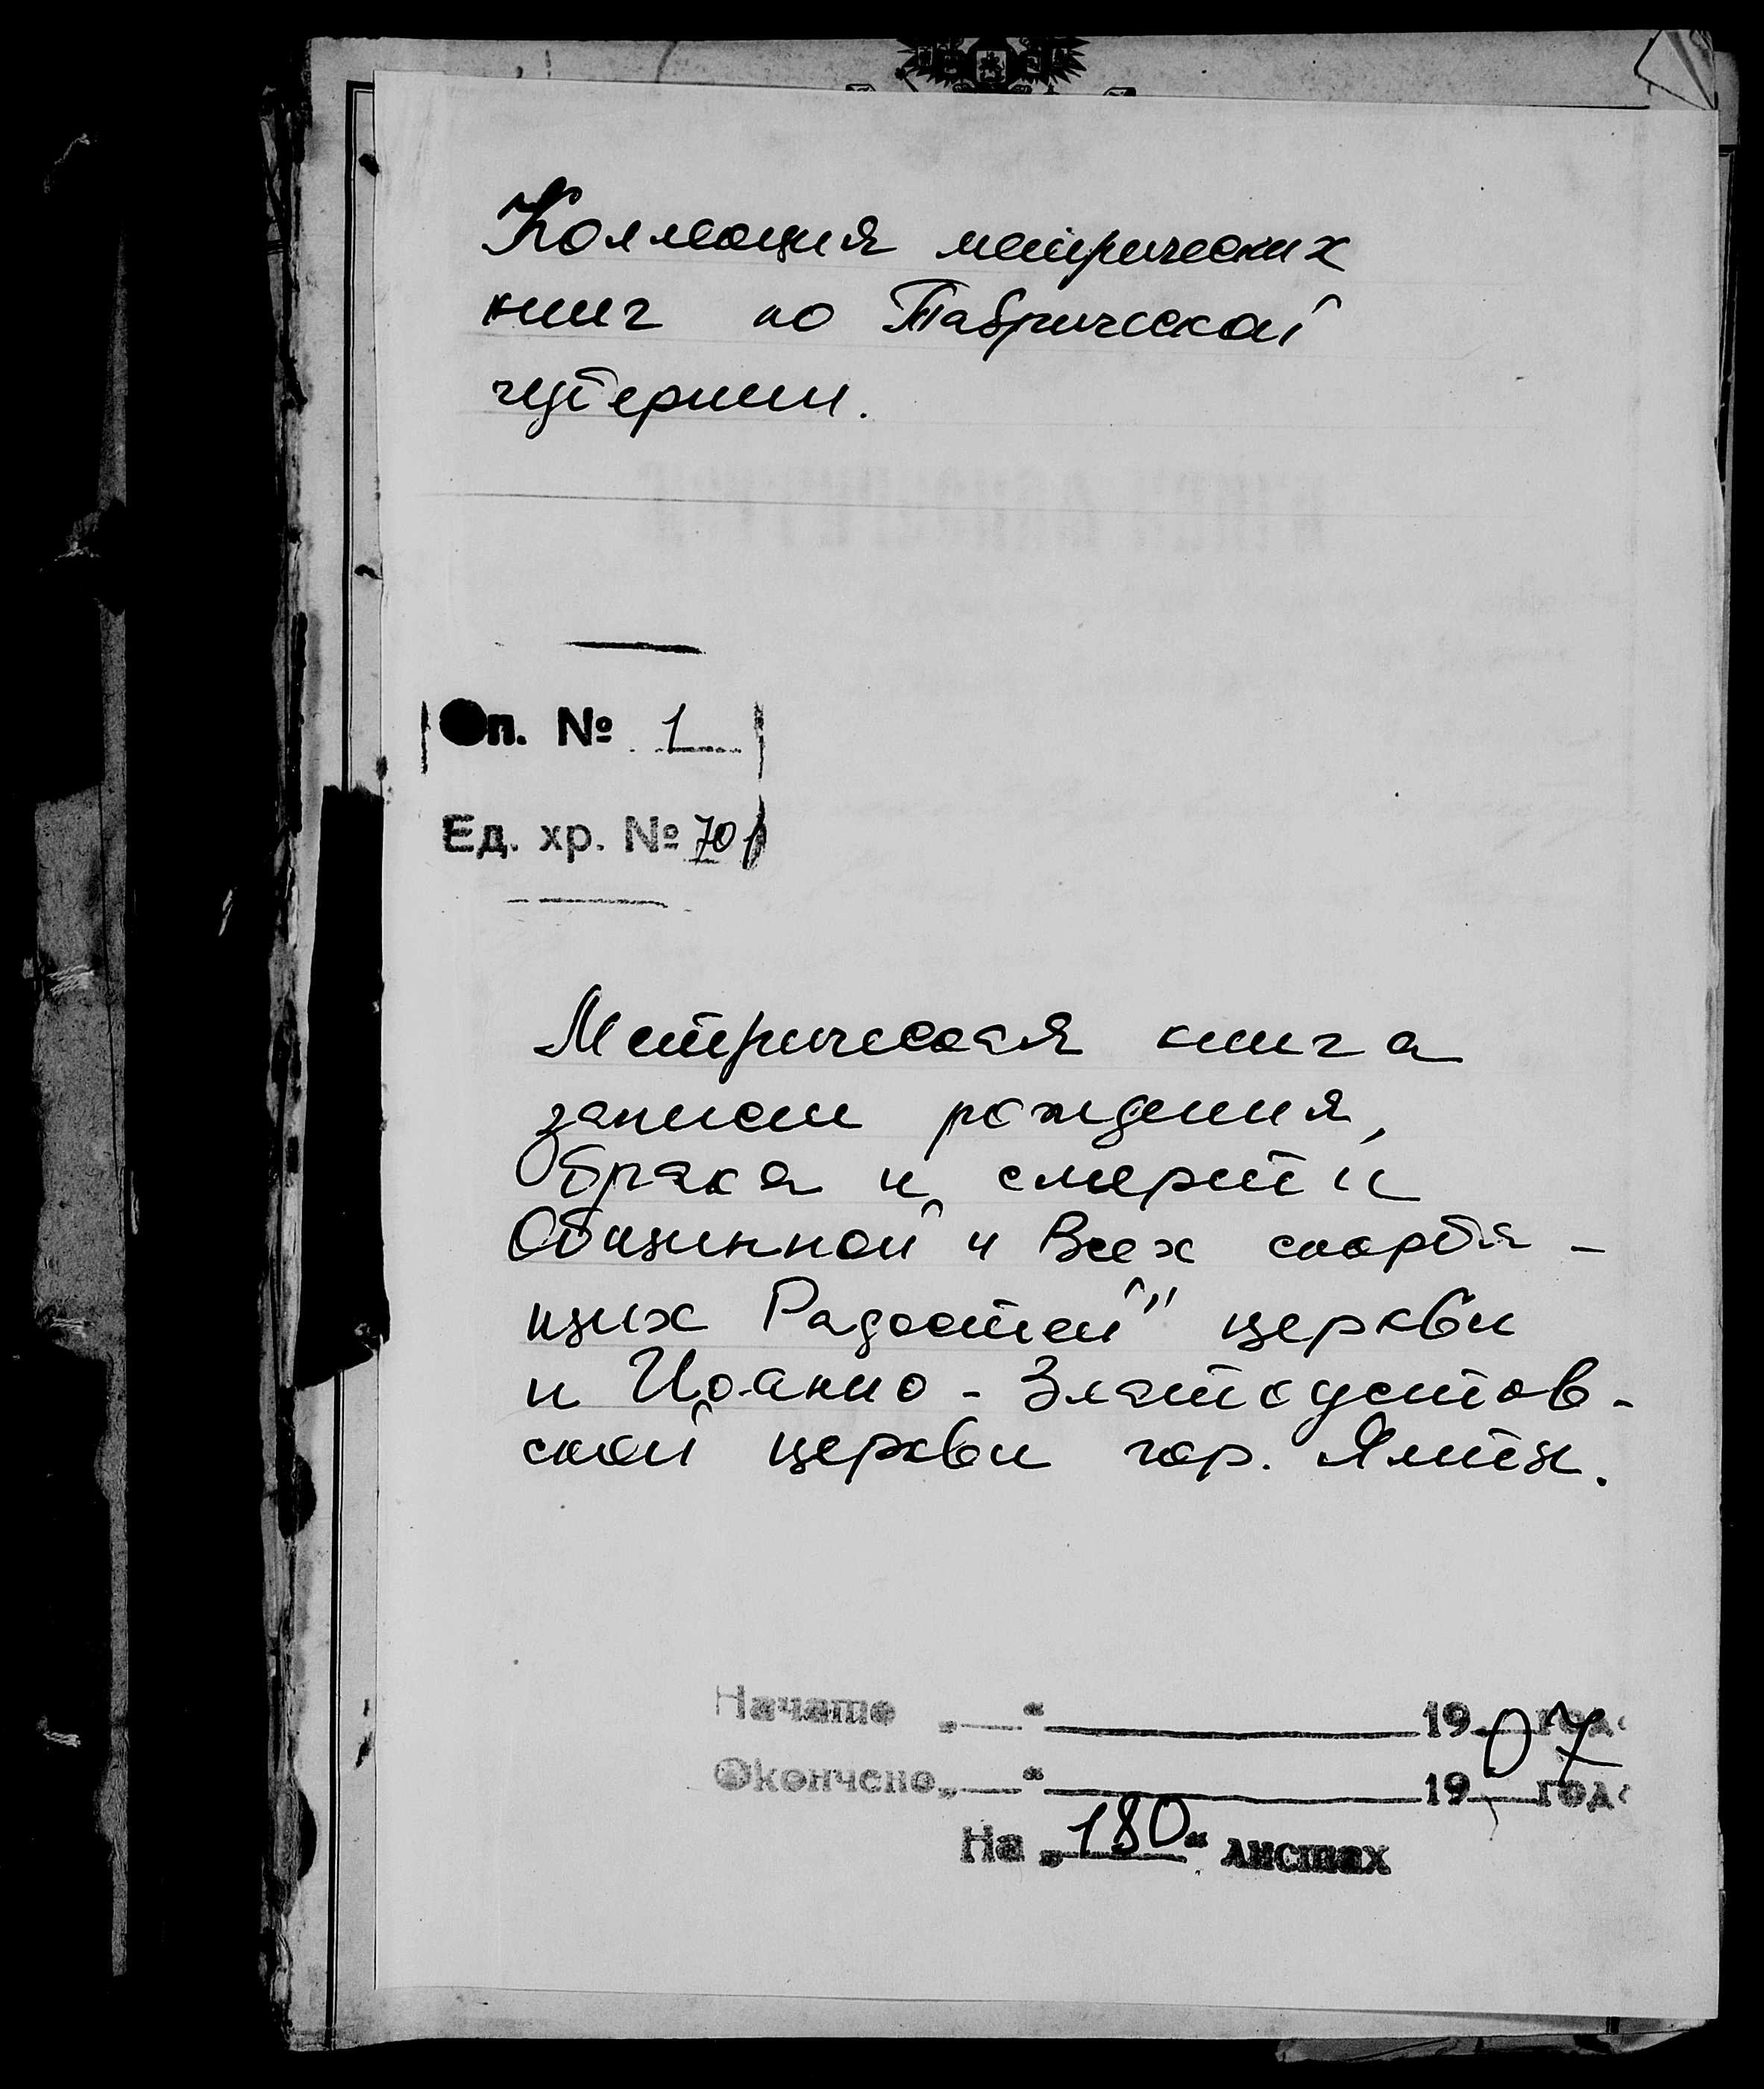 Коллекция метрических
книг по Таврической
губернии.
Оп. № 1
Ед. хр. № 701
Метрическая книга
записи рождения,
брака и смерти
Общинной „Всех скорбя-
щих Радостей" церкви
и Иоанно-Златоустов-
ской церкви гор. Ялты.
Начато „___" ______ 1907 год
Окончено „___" ______ 19___ год
На „180" листах